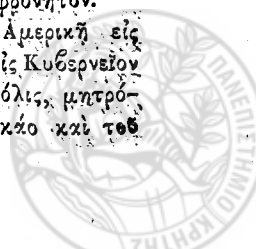 φρονητον.
Ἀμερικῇ εἰς
ἰς Κυβερνεῖον
όλις, μητρό-
κάο καὶ τοῦ
ΠΑΝΕΠΙΣΤΗΜΙΟ ΚΡΗΤΗΣ